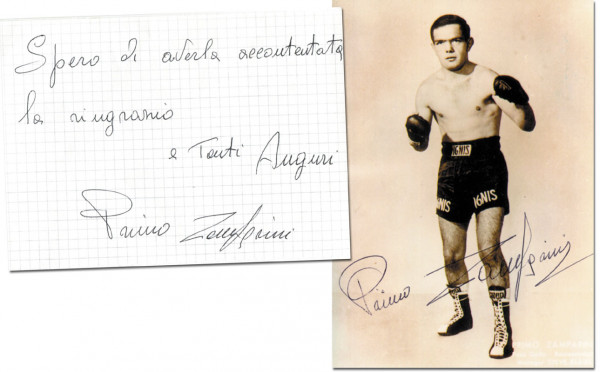 Spero di averla accontentata
la ringrazio
e Tanti Auguri
Primo Zamparini
IGNIS
IGNIS
IGNIS
Primo Zamparini